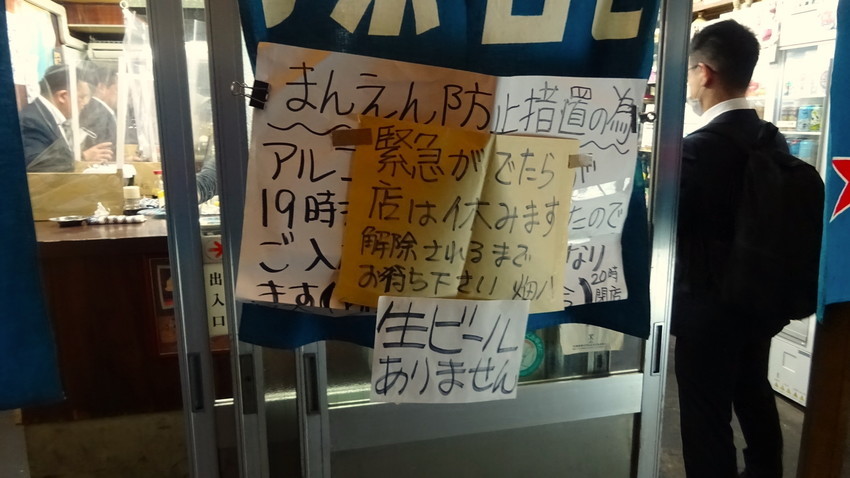 まんえん防止措置の為
アル
19時 たので
ご入 なり
ます(
20時
閉店
緊急がでたら
店は休みます
解除されるまで
お待ち下さい
生ビール
ありません
出入口